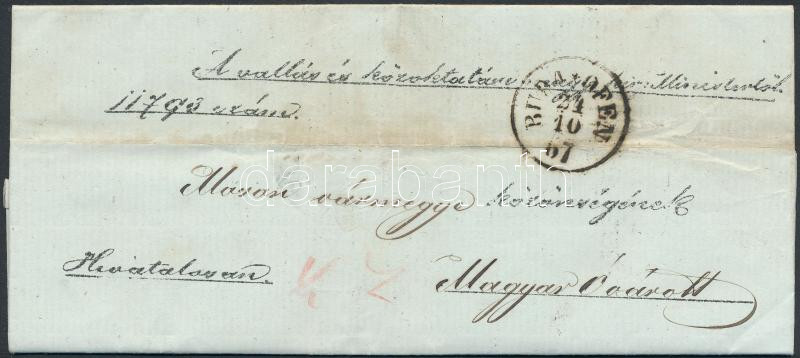 A vallás és közoktatási magy. kir. Ministertől.
11793 szám.
BUDA-OFEN
24
10
67
darabanth
Moson vármegye közönségének
Hivatalosan
Magyar Óvárott